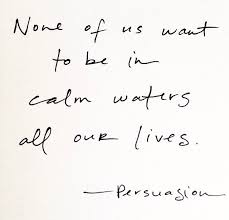 None of us want
to be in
calm waters
all our lives.
—Persuasion